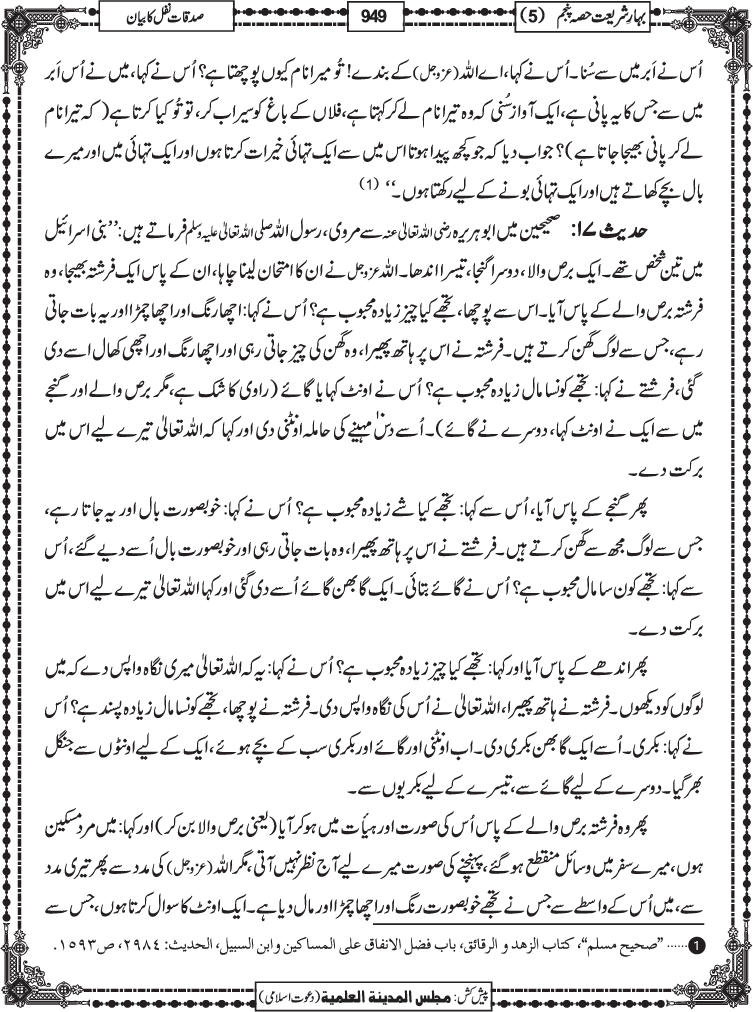 بہارِ شریعت حصہ پنجم (5)
949
صدقات نفل کا بیان
اُس نے اَبر میں سے سُنا۔ اُس نے کہا، اے اللہ (عزوجل) کے بندے! تُو میرا نام کیوں پوچھتا ہے؟ اُس نے کہا، میں نے اُس اَبر
میں سے جس کا یہ پانی ہے، ایک آواز سُنی کہ وہ تیرا نام لے کر کہتا ہے، فلاں کے باغ کو سیراب کر، تو تُو کیا کرتا ہے (کہ تیرا نام
لے کر پانی بھیجا جاتا ہے)؟ جواب دیا کہ جو کچھ پیدا ہوتا اس میں سے ایک تہائی خیرات کرتا ہوں اور ایک تہائی میں اور میرے
بال بچے کھاتے ہیں اور ایک تہائی بونے کے لیے رکھتا ہوں۔‘‘ (1)
حدیث ۱۷: صحیحین میں ابوہریرہ رضی اللہ تعالیٰ عنہ سے مروی، رسول اللہ صلی اللہ تعالیٰ علیہ وسلم فرماتے ہیں: ’’بنی اسرائیل
میں تین شخص تھے۔ ایک برص والا، دوسرا گنجا، تیسرا اندھا۔ اللہ عزوجل نے ان کا امتحان لینا چاہا، ان کے پاس ایک فرشتہ بھیجا، وہ
فرشتہ برص والے کے پاس آیا۔ اس سے پوچھا، تجھے کیا چیز زیادہ محبوب ہے؟ اُس نے کہا: اچھا رنگ اور اچھا چمڑا اور یہ بات جاتی
رہے، جس سے لوگ گھن کرتے ہیں۔ فرشتہ نے اس پر ہاتھ پھیرا، وہ گھن کی چیز جاتی رہی اور اچھا رنگ اور اچھی کھال اسے دی
گئی، فرشتے نے کہا: تجھے کونسا مال زیادہ محبوب ہے؟ اُس نے اونٹ کہا یا گائے (راوی کا شک ہے، مگر برص والے اور گنجے
میں سے ایک نے اونٹ کہا، دوسرے نے گائے)۔ اُسے دس۱۰ مہینے کی حاملہ اونٹنی دی اور کہا کہ اللہ تعالیٰ تیرے لیے اس میں
برکت دے۔
پھر گنجے کے پاس آیا، اُس سے کہا: تجھے کیا شے زیادہ محبوب ہے؟ اُس نے کہا: خوبصورت بال اور یہ جاتا رہے،
جس سے لوگ مجھ سے گھن کرتے ہیں۔ فرشتے نے اس پر ہاتھ پھیرا، وہ بات جاتی رہی اور خوبصورت بال اُسے دیے گئے، اُس
سے کہا: تجھے کون سا مال محبوب ہے؟ اُس نے گائے بتائی۔ ایک گابھن گائے اُسے دی گئی اور کہا اللہ تعالیٰ تیرے لیے اس میں
برکت دے۔
پھر اندھے کے پاس آیا اور کہا: تجھے کیا چیز زیادہ محبوب ہے؟ اُس نے کہا: یہ کہ اللہ تعالیٰ میری نگاہ واپس دے کہ میں
لوگوں کو دیکھوں۔ فرشتہ نے ہاتھ پھیرا، اللہ تعالیٰ نے اُس کی نگاہ واپس دی۔ فرشتہ نے پوچھا، تجھے کونسا مال زیادہ پسند ہے؟ اُس
نے کہا: بکری۔ اُسے ایک گابھن بکری دی۔ اب اونٹنی اور گائے اور بکری سب کے بچے ہوئے، ایک کے لیے اونٹوں سے جنگل
بھر گیا۔ دوسرے کے لیے گائے سے، تیسرے کے لیے بکریوں سے۔
پھر وہ فرشتہ برص والے کے پاس اُس کی صورت اور ہیأت میں ہو کر آیا (یعنی برص والا بن کر) اور کہا: میں مرد مسکین
ہوں، میرے سفر میں وسائل منقطع ہوگئے، پہنچنے کی صورت میرے لیے آج نظر نہیں آتی، مگر اللہ (عزوجل) کی مدد سے پھر تیری مدد
سے، میں اُس کے واسطے سے جس نے تجھے خوبصورت رنگ اور اچھا چمڑا اور مال دیا ہے۔ ایک اونٹ کا سوال کرتا ہوں، جس سے
1 ...... ’’صحیح مسلم‘‘، کتاب الزھد و الرقائق، باب فضل الانفاق علی المساکین وابن السبیل، الحدیث: ۲۹۸۴، ص۱۵۹۳.
پیش کش: مجلس المدینة العلمیة (دعوتِ اسلامی)